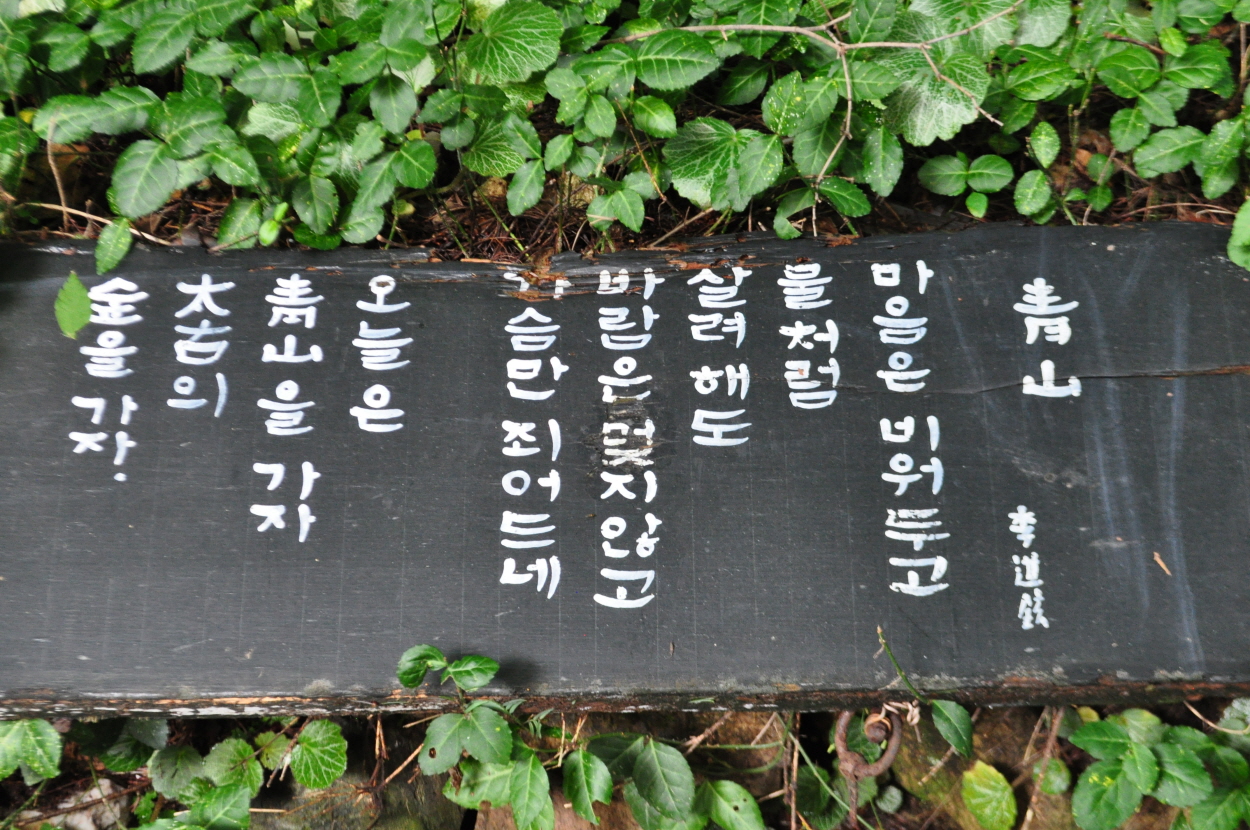 青山
李道鉉
마음은 비워두고
물처럼
살려해도
바람은 멎지않고
가슴만 죄어드네
오늘은
靑山을 가자
太古의
숲을 가자.